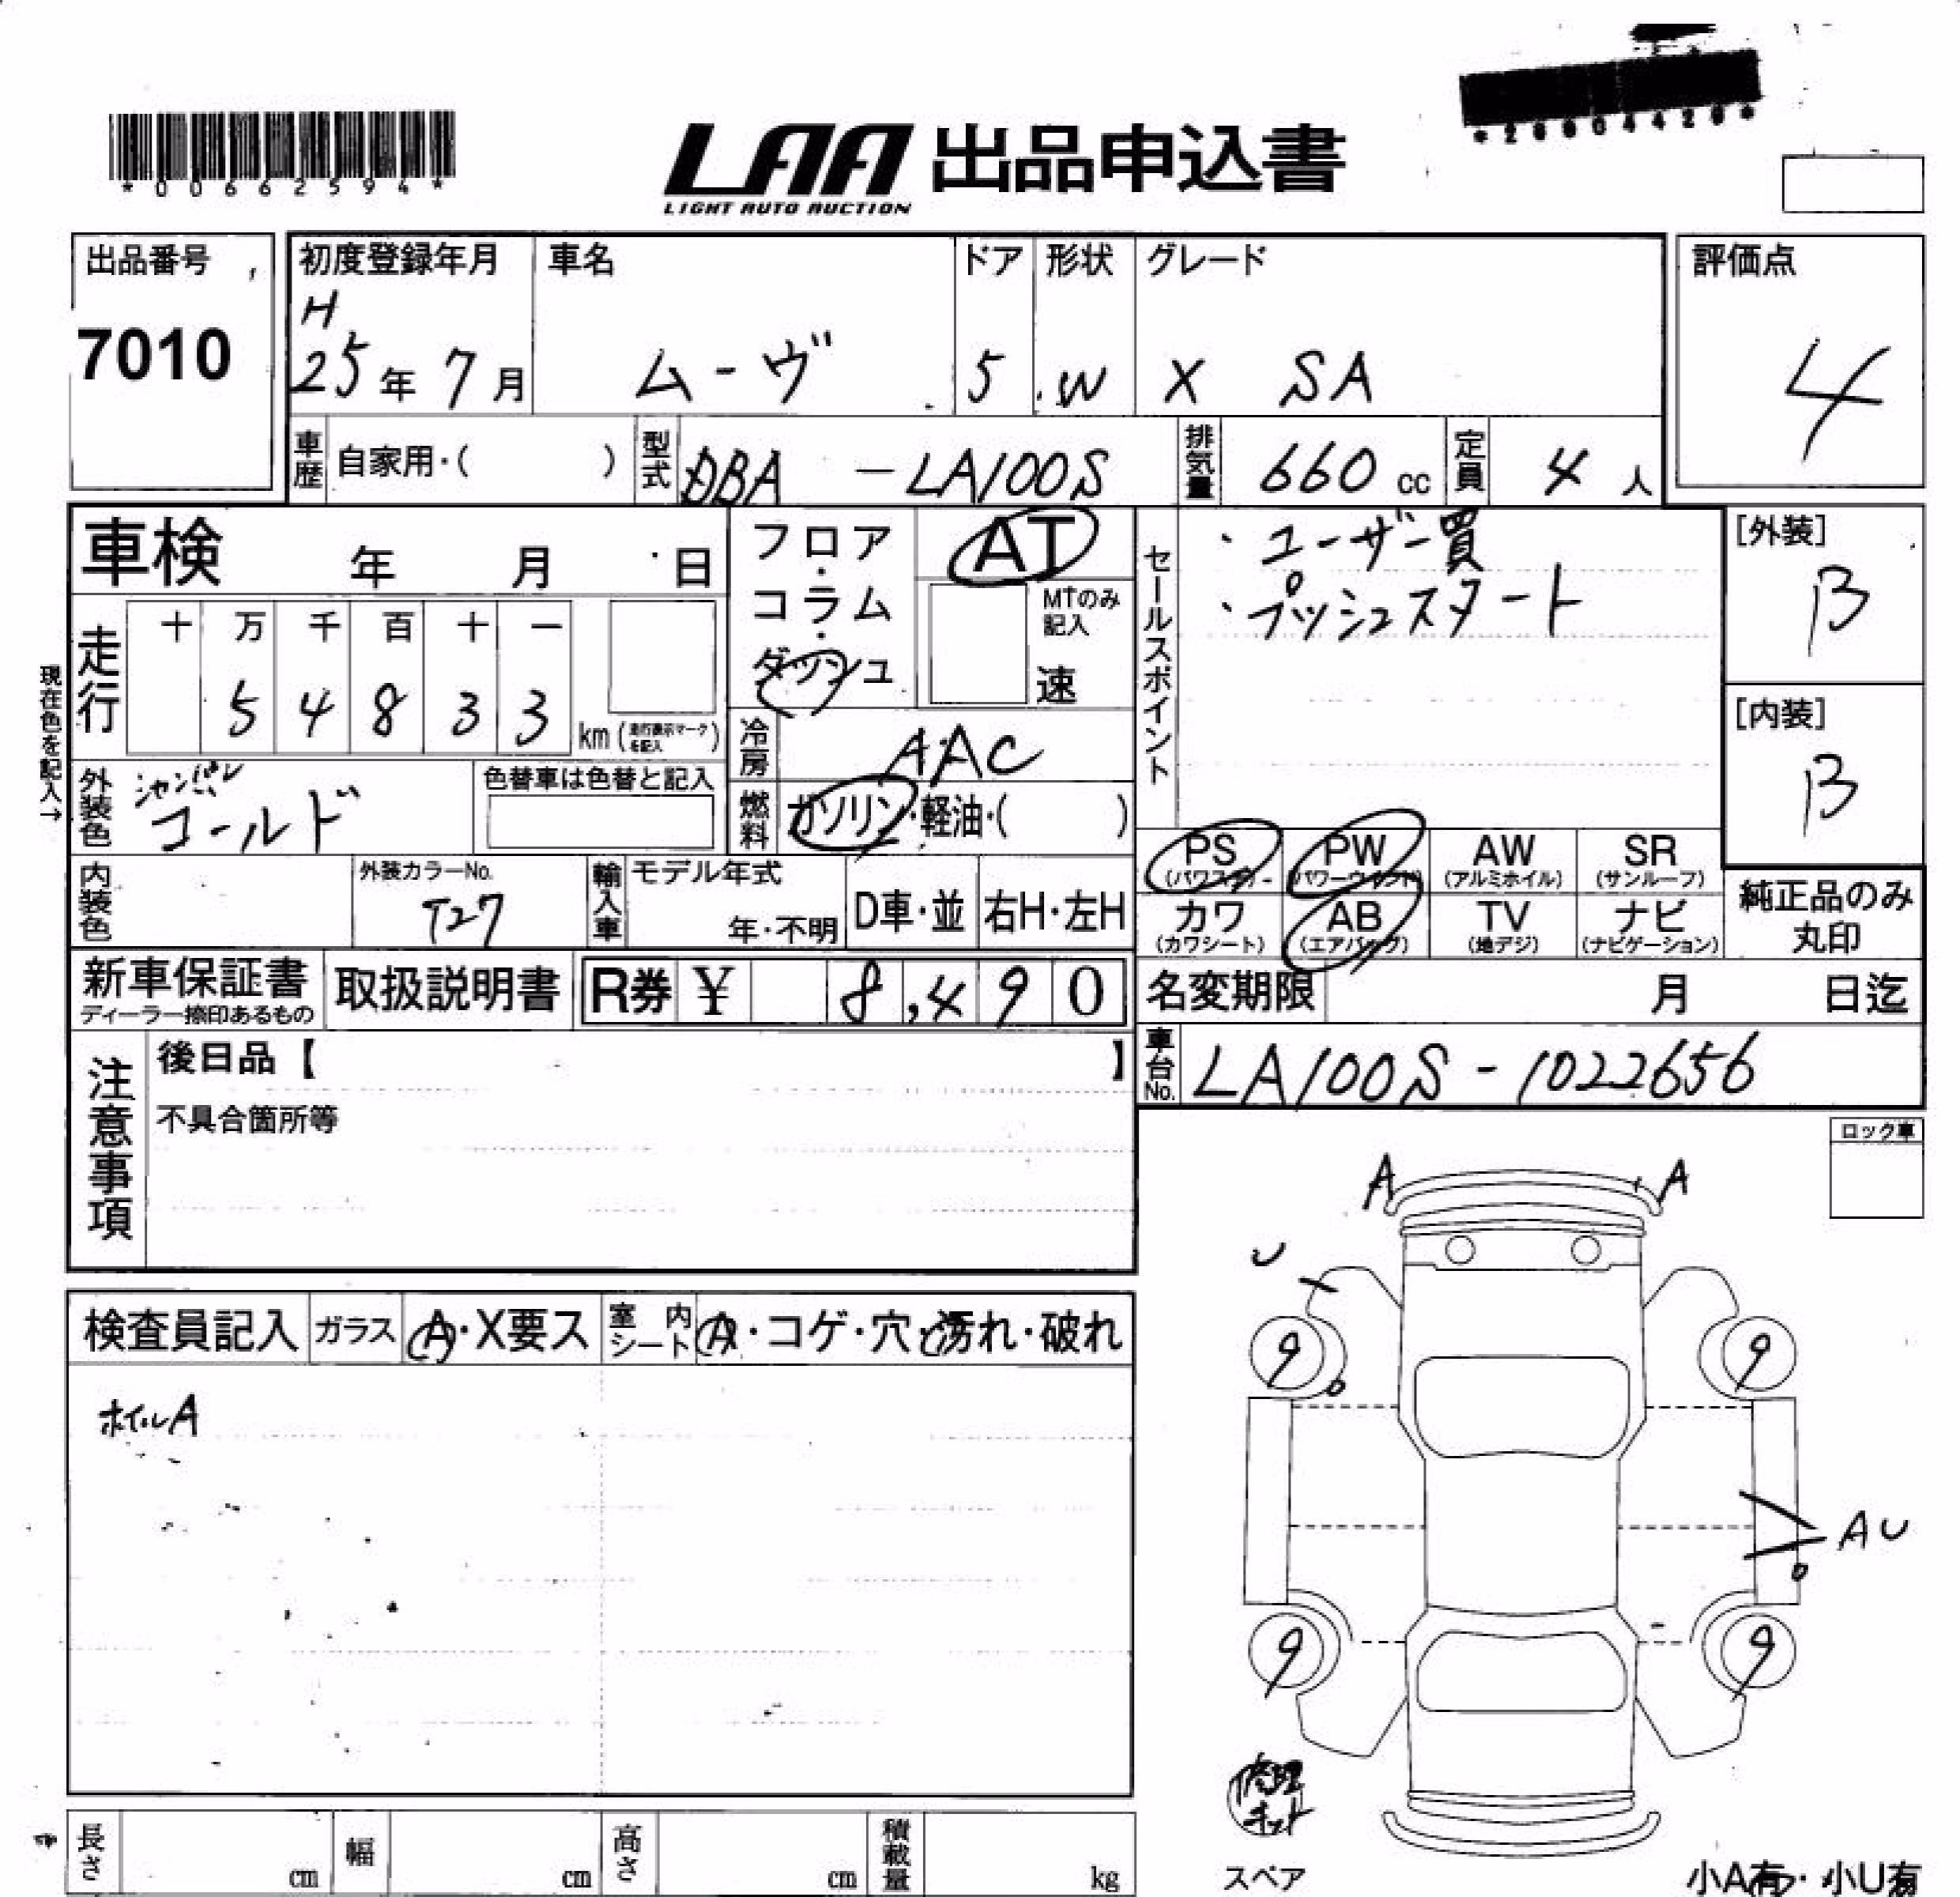 *00662594*
LAA 出品申込書
LIGHT AUTO AUCTION
出品番号
7010
初度登録年月
H
25年 7月
車名
ムーヴ
ドア
5
形状
W
グレード
X SA
評価点
4
車歴 自家用・( )
型式 DBA -LA100S
排気量 660 cc
定員 4 人
車検 年 月 日
現在色を記入→
走行
十 万 千 百 十 一
5 4 8 3 3
km (走行表示マークを記入)
フロア・コラム・ダッシュ
AT
MTのみ記入
速
冷房 AAC
燃料 ガソリン・軽油・( )
外装色 シャンパン
ゴールド
色替車は色替と記入
内装色
外装カラーNo.
T27
輸入車 モデル年式
年・不明
D車・並
右H・左H
セールスポイント
・ユーザー買
・プッシュスタート
[外装]
B
[内装]
B
PS
(パワステ)
PW
(パワーウィンドウ)
AW
(アルミホイル)
SR
(サンルーフ)
カワ
(カワシート)
AB
(エアバッグ)
TV
(地デジ)
ナビ
(ナビゲーション)
純正品のみ
丸印
新車保証書
ディーラー捺印あるもの
取扱説明書
R券 ¥ 8,490
名変期限 月 日迄
車台No. LA100S-1022656
注意事項
後日品【 】
不具合箇所等
ロック車
検査員記入
ガラス A・X要ス
室内シート A・コゲ・穴・汚れ・破れ
ホイルA
A A
U
9 9
AU
9 9
修理
キット
スペア
小A有・小U有
長さ cm
幅 cm
高さ cm
積載量 kg